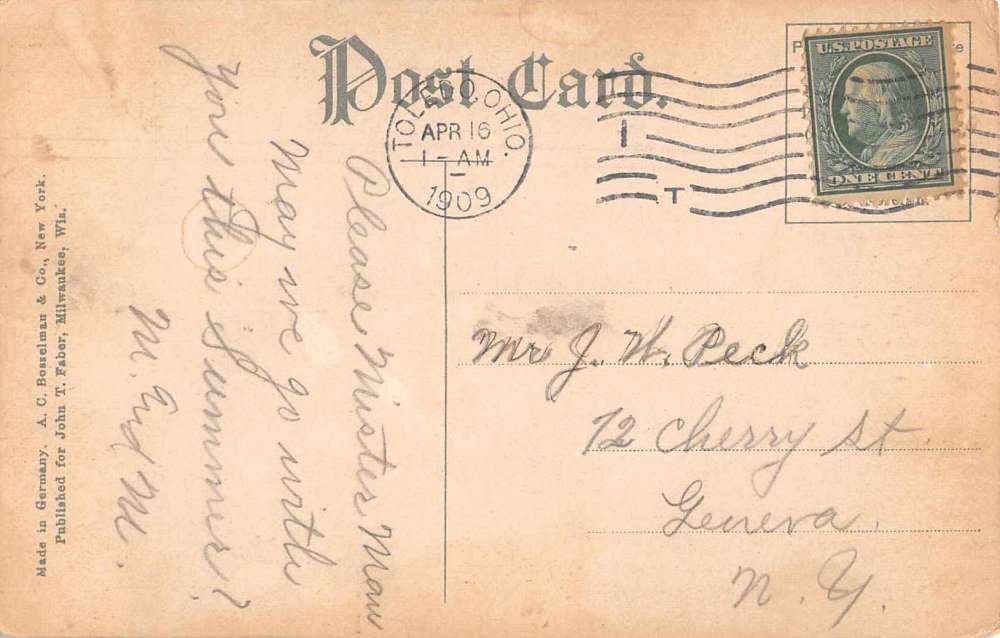 Post Card.
TOLEDO, OHIO.
APR 16
1-AM
1909
I
T
U.S.POSTAGE
ONE CENT
Made in Germany. A. C. Bosselman & Co., New York.
Published for John T. Faber, Milwaukee, Wis.
Please Mister Man
May we go with
you this Summer?
M. and M.
Mr J. W. Peck
72 Cherry St.
Geneva.
N. Y.